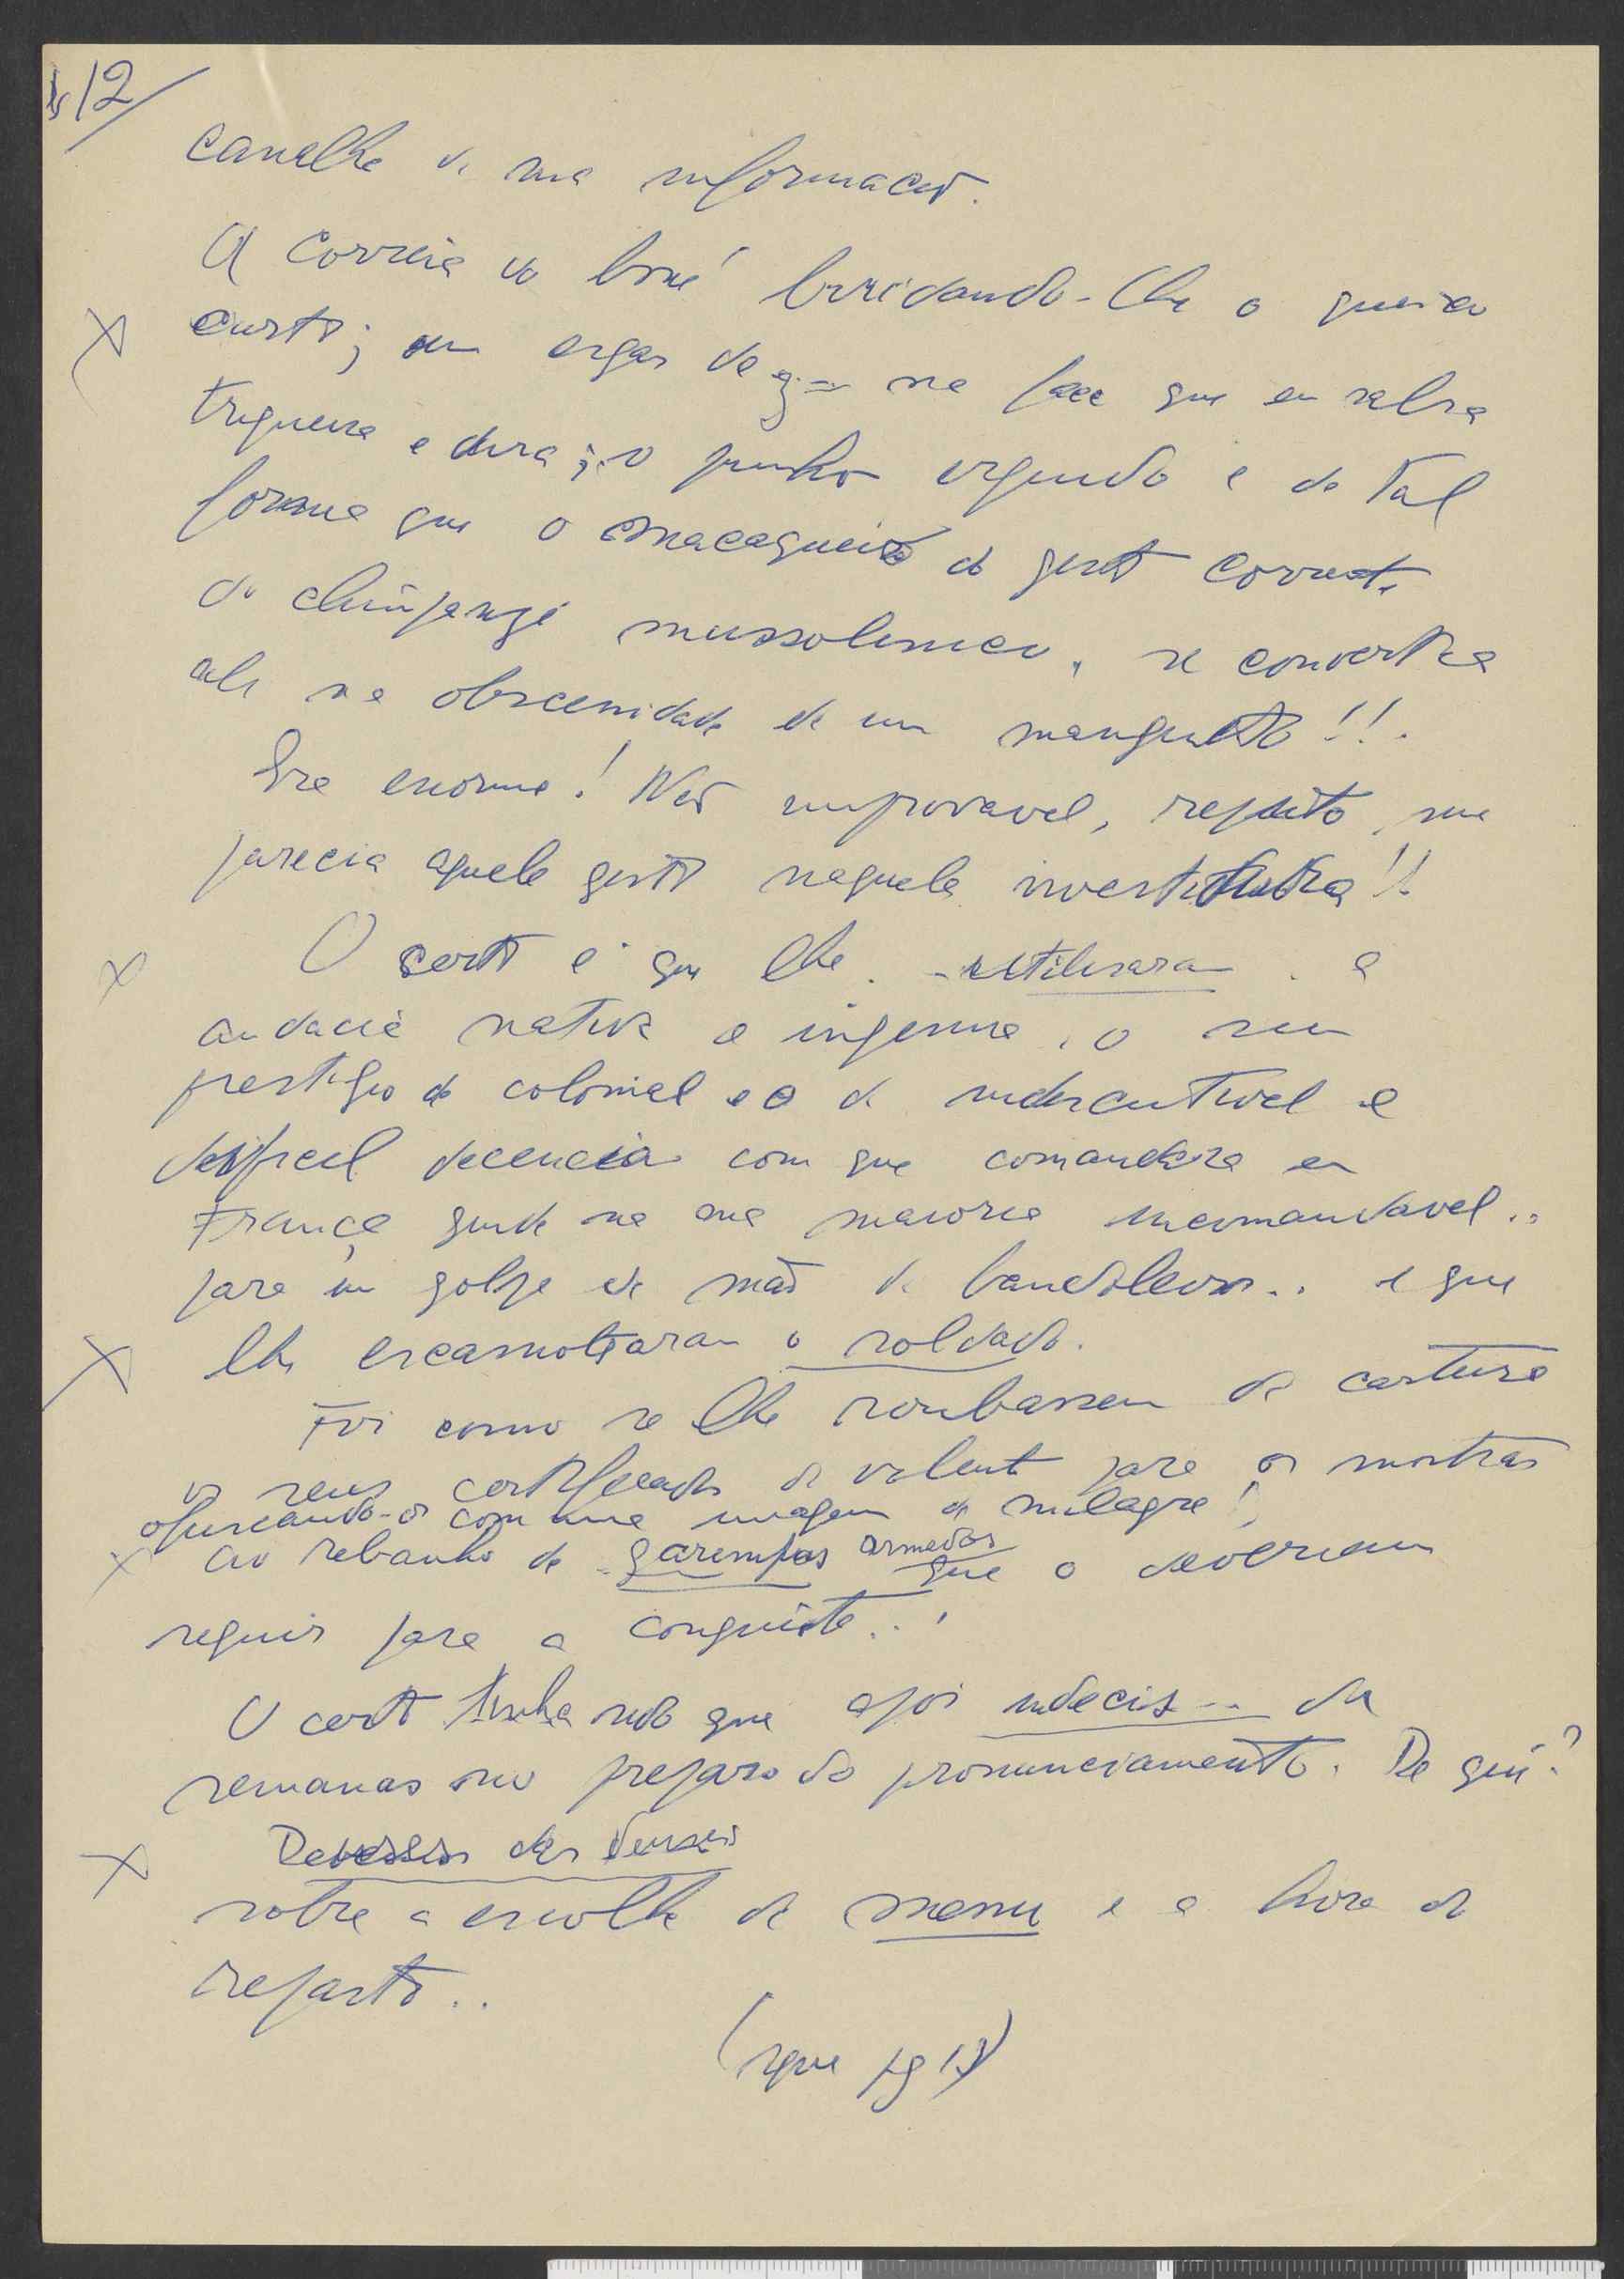 12
canalha de sua informação.
A correia do boné bridando-lhe o queixo
curto; um esgar de na face que eu sabia
trigueira e dura; o punho erguido e de tal
forma que o macaqueio do gesto corrente
do chimpanzé mussolinico, se convertia
ali na obscenidade de um manguito!!.
Era enorme! Não improvavel, repito, me
parecia aquele gesto naquela investidura!!
O certo é que lhe utilisaram a
audacia nativa e ingenua, o seu
prestigio de colonial e o de indiscutivel e
dificil decencia com que comandára em
França gente na sua maioria incomandavel..
para um golpe de mão de bandoleiros.. e que
lhe escamotearam o soldado.
Foi como se lhe roubassem da carteira
os seus certificados de valente para os mostrar
ofuscando-os com uma imagem de milagre!
ao rebanho de garimpos armados que o deveriam
seguir para a conquista...
O certo tinha sido que após indecis... de
semanas no preparo do pronunciamento. De quê?
sobre a escolha de menu e a hora do
repasto..
(segue pg 13)